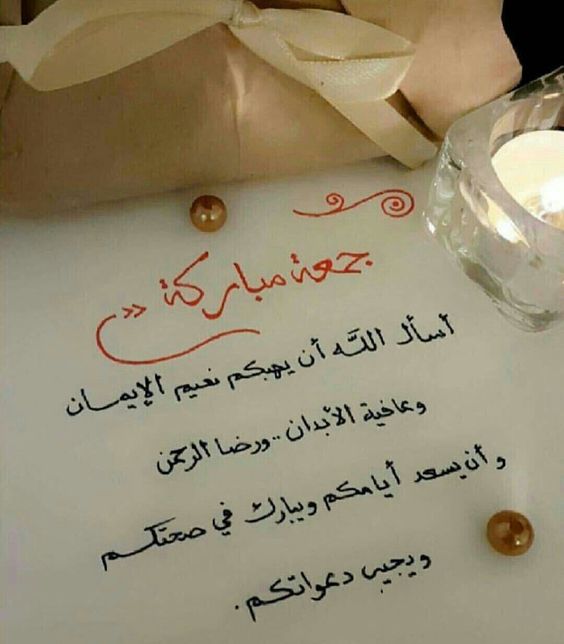 جمعة مباركة »
أسأل الله أن يهبكم نعيم الإيمان
وعافية الأبدان .. ورضا الرحمن
وأن يسعد أيامكم ويبارك في صحتكم
ويجيب دعواتكم.